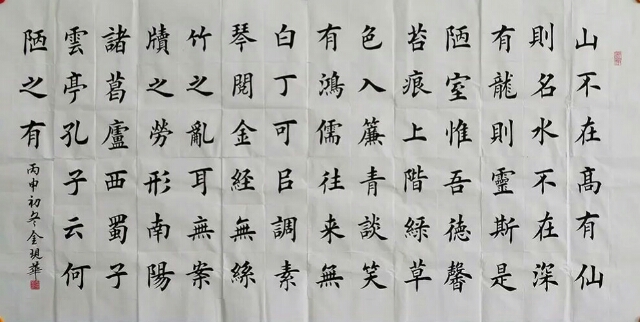 山不在高有仙
則名水不在深
有龍則靈斯是
陋室惟吾德馨
苔痕上階緑草
色入簾青談笑
有鴻儒往来無
白丁可㠯調素
琴閱金經無絲
竹之亂耳無案
牘之勞形南陽
諸葛廬西蜀子
雲亭孔子云何
陋之有
丙申初冬金現華